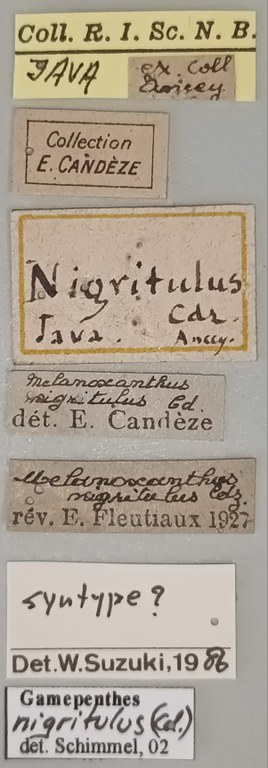 Coll. R. I. Sc. N. B.
JAVA
ex. Coll
Collection
E. CANDÈZE
Nigritulus
Cdz.
Java. Ancey.
Melanoxanthus
nigritulus Cd.
dét. E. Candèze
Melanoxanthus
nigritulus Cdz.
rév. E. Fleutiaux 1927
syntype?
Det.W.Suzuki,1986
Gamepenthes
nigritulus (Cd.)
det. Schimmel, 02